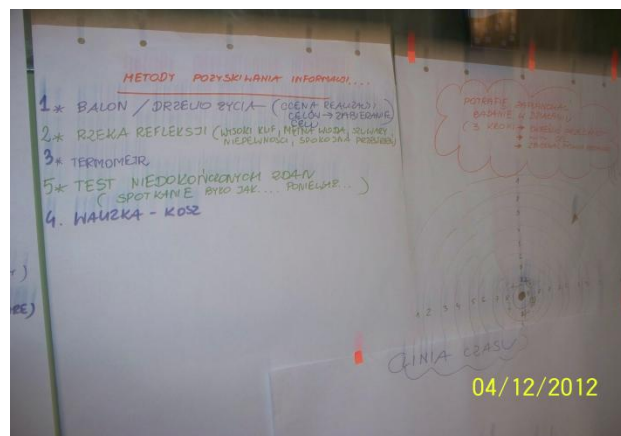 METODY POZYSKIWANIA INFORMACJI....
1* BALON / DRZEWO ŻYCIA (OCENA REALIZACJI
CELÓW → ZABIERANIE
CELU)
2* RZEKA REFLEKSJI (WYSOKI KLIF, MĘTNA WODA, SZUWARY
NIEPEWNOŚCI, SPOKOJNA PRZYSTAŃ)
3* TERMOMETR
5* TEST NIEDOKOŃCZONYCH ZDAŃ
( SPOTKANIE BYŁO JAK.... PONIEWAŻ...)
4. WALIZKA - KOSZ
POTRAFIĘ
BADANIE W
3 KROKI →
LINIA CZASU
04/12/2012